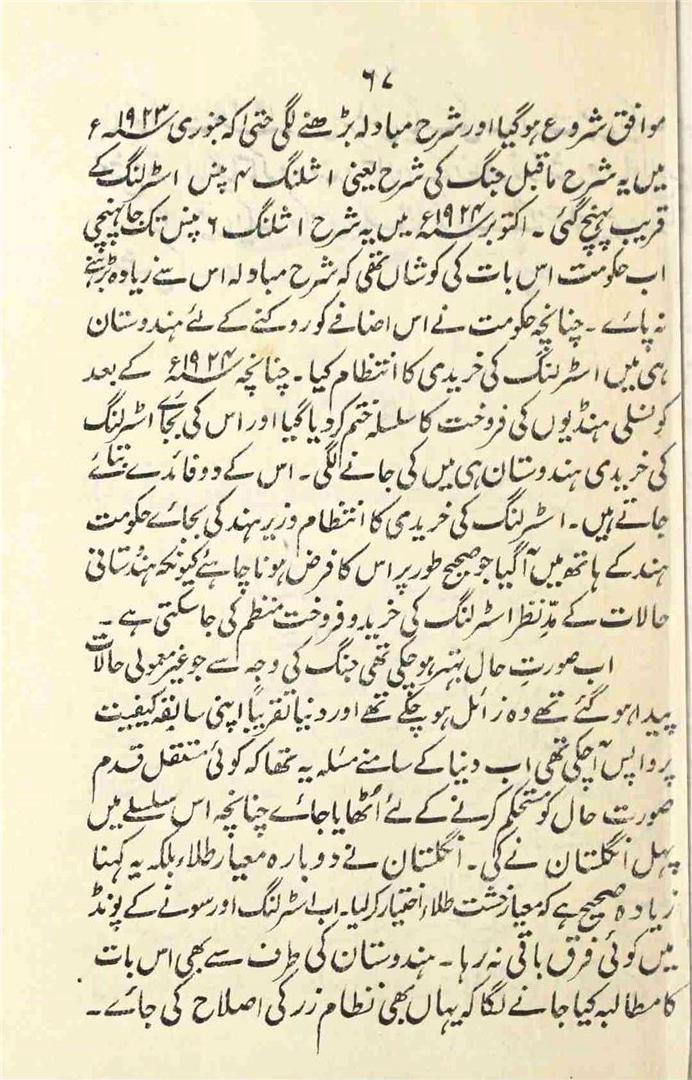 ۶۷
موافق شروع ہو گیا اور شرح مبادلہ بڑھنے لگی حتیٰ کہ جنوری ۱۹۲۳ء
میں یہ شرح ماقبل جنگ کی شرح یعنی ۱ شلنگ ۴ پنس اسٹرلنگ کے
قریب پہنچ گئی ۔ اکتوبر ۱۹۲۴ء میں یہ شرح ۱ شلنگ ۶ پنس تک جا پہنچی
اب حکومت اس بات کی کوشاں تھی کہ شرح مبادلہ اس سے زیادہ بڑہنے
نہ پائے ۔ چنانچہ حکومت نے اس اضافے کو روکنے کے لئے ہندوستان
ہی میں اسٹرلنگ کی خریدی کا انتظام کیا ۔ چنانچہ ۱۹۲۴ء کے بعد
کونسلی ہنڈیوں کی فروخت کا سلسلہ ختم کر دیا گیا اور اس کی بجائے اسٹرلنگ
کی خریدی ہندوستان ہی میں کی جانے لگی ۔ اس کے دو فائدے بتائے
جاتے ہیں ۔ اسٹرلنگ کی خریدی کا انتظام وزیر ہند کی بجائے حکومت
ہند کے ہاتھ میں آ گیا جو صحیح طور پر اس کا فرض ہونا چاہئے کیونکہ ہندستانی
حالات کے مدِّ نظر اسٹرلنگ کی خرید و فروخت منظم کی جا سکتی ہے ۔
اب صورتِ حال بہتر ہو چکی تھی جنگ کی وجہ سے جو غیر معمولی حالات
پیدا ہو گئے تھے وہ زائل ہو چکے تھے اور دنیا تقریباً اپنی سابقہ کیفیت
پر واپس آ چکی تھی اب دنیا کے سامنے مسئلہ یہ تھا کہ کوئی مستقل قدم
صورت حال کو مستحکم کرنے کے لئے اُٹھایا جائے چنانچہ اس سلسلے میں
پہل انگلستان نے کی ۔ انگلستان نے دوبارہ معیار طلاء بلکہ یہ کہنا
زیادہ صحیح ہے کہ معیار خشت طلاء اختیار کر لیا ۔ اب اسٹرلنگ اور سونے کے پونڈ
میں کوئی فرق باقی نہ رہا ۔ ہندوستان کی طرف سے بھی اس بات
کا مطالبہ کیا جانے لگا کہ یہاں بھی نظام زر کی اصلاح کی جائے ۔